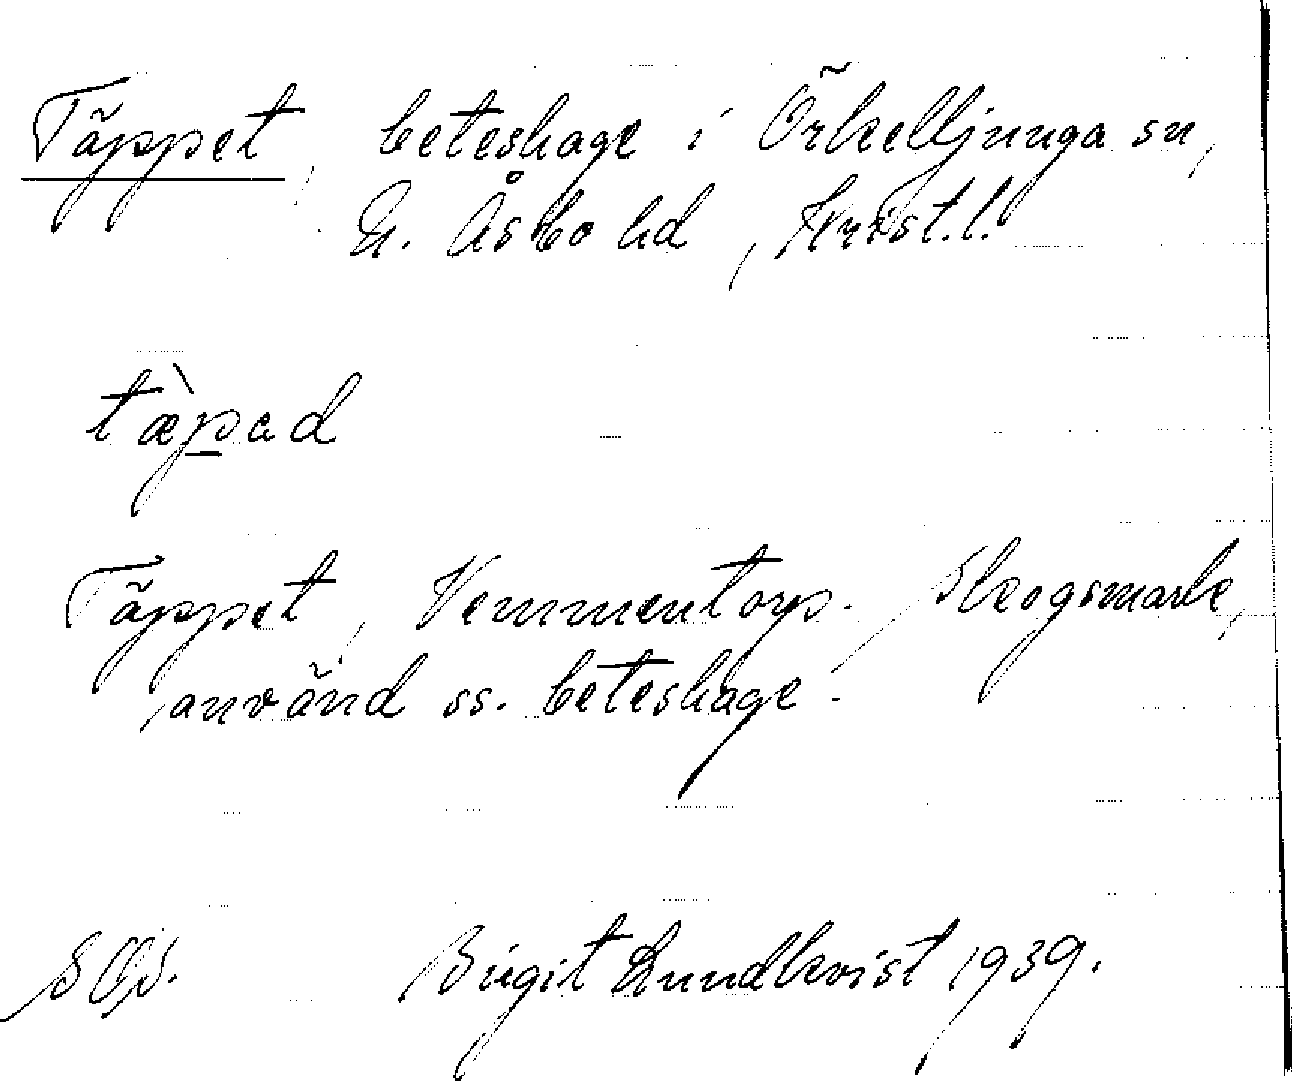 Täppet, beteshage i Örkelljunga sn,
N. Åsbo hd, Krist.l.
tæ̀pad
Täppet, Vemmentorp. Skogsmark,
använd ss. beteshage.
Birgit Lundkvist 1939.